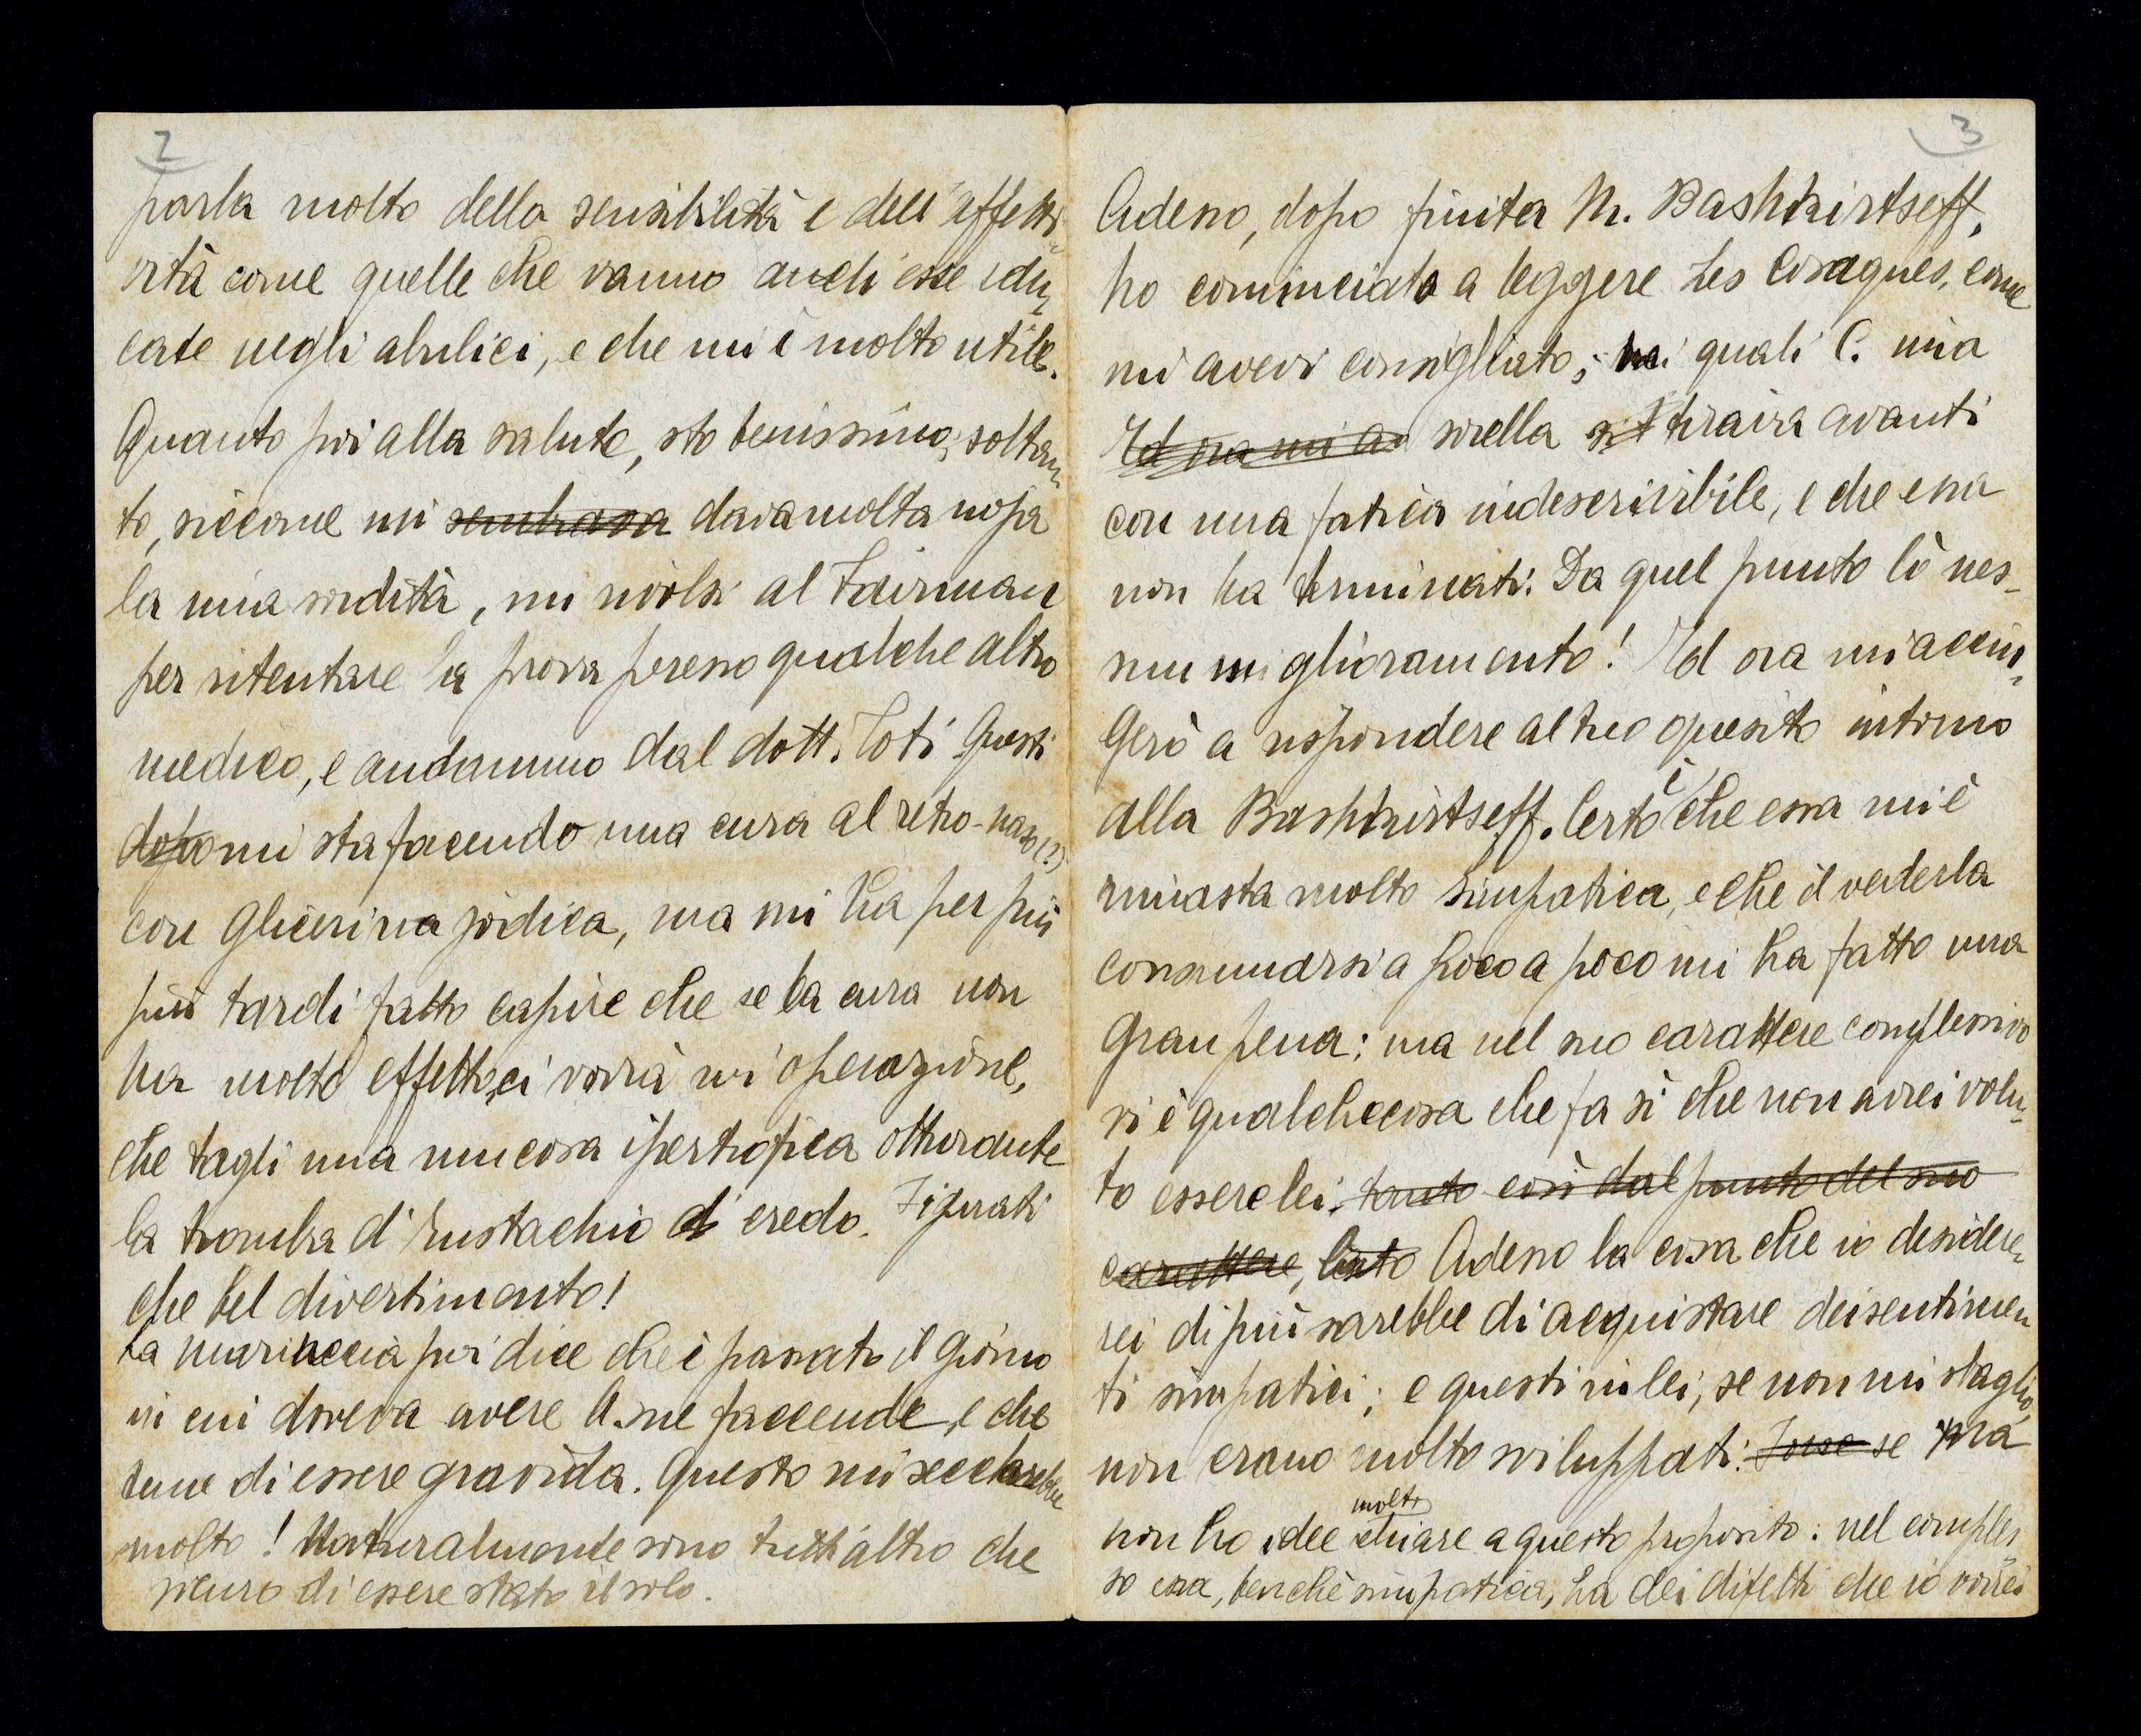 2
parla molto della sensibilità e dell'affetti-
vità come quelle che vanno anch'esse edu-
cate negli abulici, e che mi è molto utile.
Quanto poi alla salute, sto benissimo; soltan-
to, siccome mi sembrava dava molta noja
la mia sordità, mi rivolsi al Fairman
per ritentare la prova presso qualche altro
medico, e andammo dal dott. Toti. Questi
dopo mi sta facendo una cura al retro-naso (?)
con glicerina jodica, ma mi ha per più
più tardi fatto capire che se la cura non
ha molto effetto, ci vorrà un'operazione,
che tagli una mucosa ipertrofica otturante
la tromba d'Eustachio credo. Figurati
che bel divertimento!
La poi dice che è passato il giorno
in cui doveva avere le sue faccende, e che
teme di essere gravida. Questo mi seccherebbe
molto! Naturalmente sono tutt'altro che
sicuro di essere stato il solo.
3
Adesso, dopo finita M. Bashkirtseff,
ho cominciato a leggere Les Cosaques, come
mi avevi consigliato; nei quali C. mia
Ed ora mi ac sorella si tirava avanti
con una fatica indescrivibile, e che essa
non ha terminati. Da quel punto lì nes-
sun miglioramento! Ed ora mi accin-
gerò a rispondere al tuo quesito intorno
alla Bashkirtseff. Certo è che essa mi è
rimasta molto simpatica, e che il vederla
consumarsi a poco a poco mi ha fatto una
gran pena: ma nel suo carattere complessivo
vi è qualchecosa che fa sì che non avrei volu-
to essere lei. tanto così dal punto del suo
carattere, Adesso la cosa che io desidere-
rei di più sarebbe di acquistare dei sentimen
ti simpatici; e questi in lei, se non mi sbaglio,
non erano molto sviluppati: Forse se
non ho idee molto chiare a questo proposito: nel comples
so essa, benchè simpatica, ha dei difetti che io vorrei